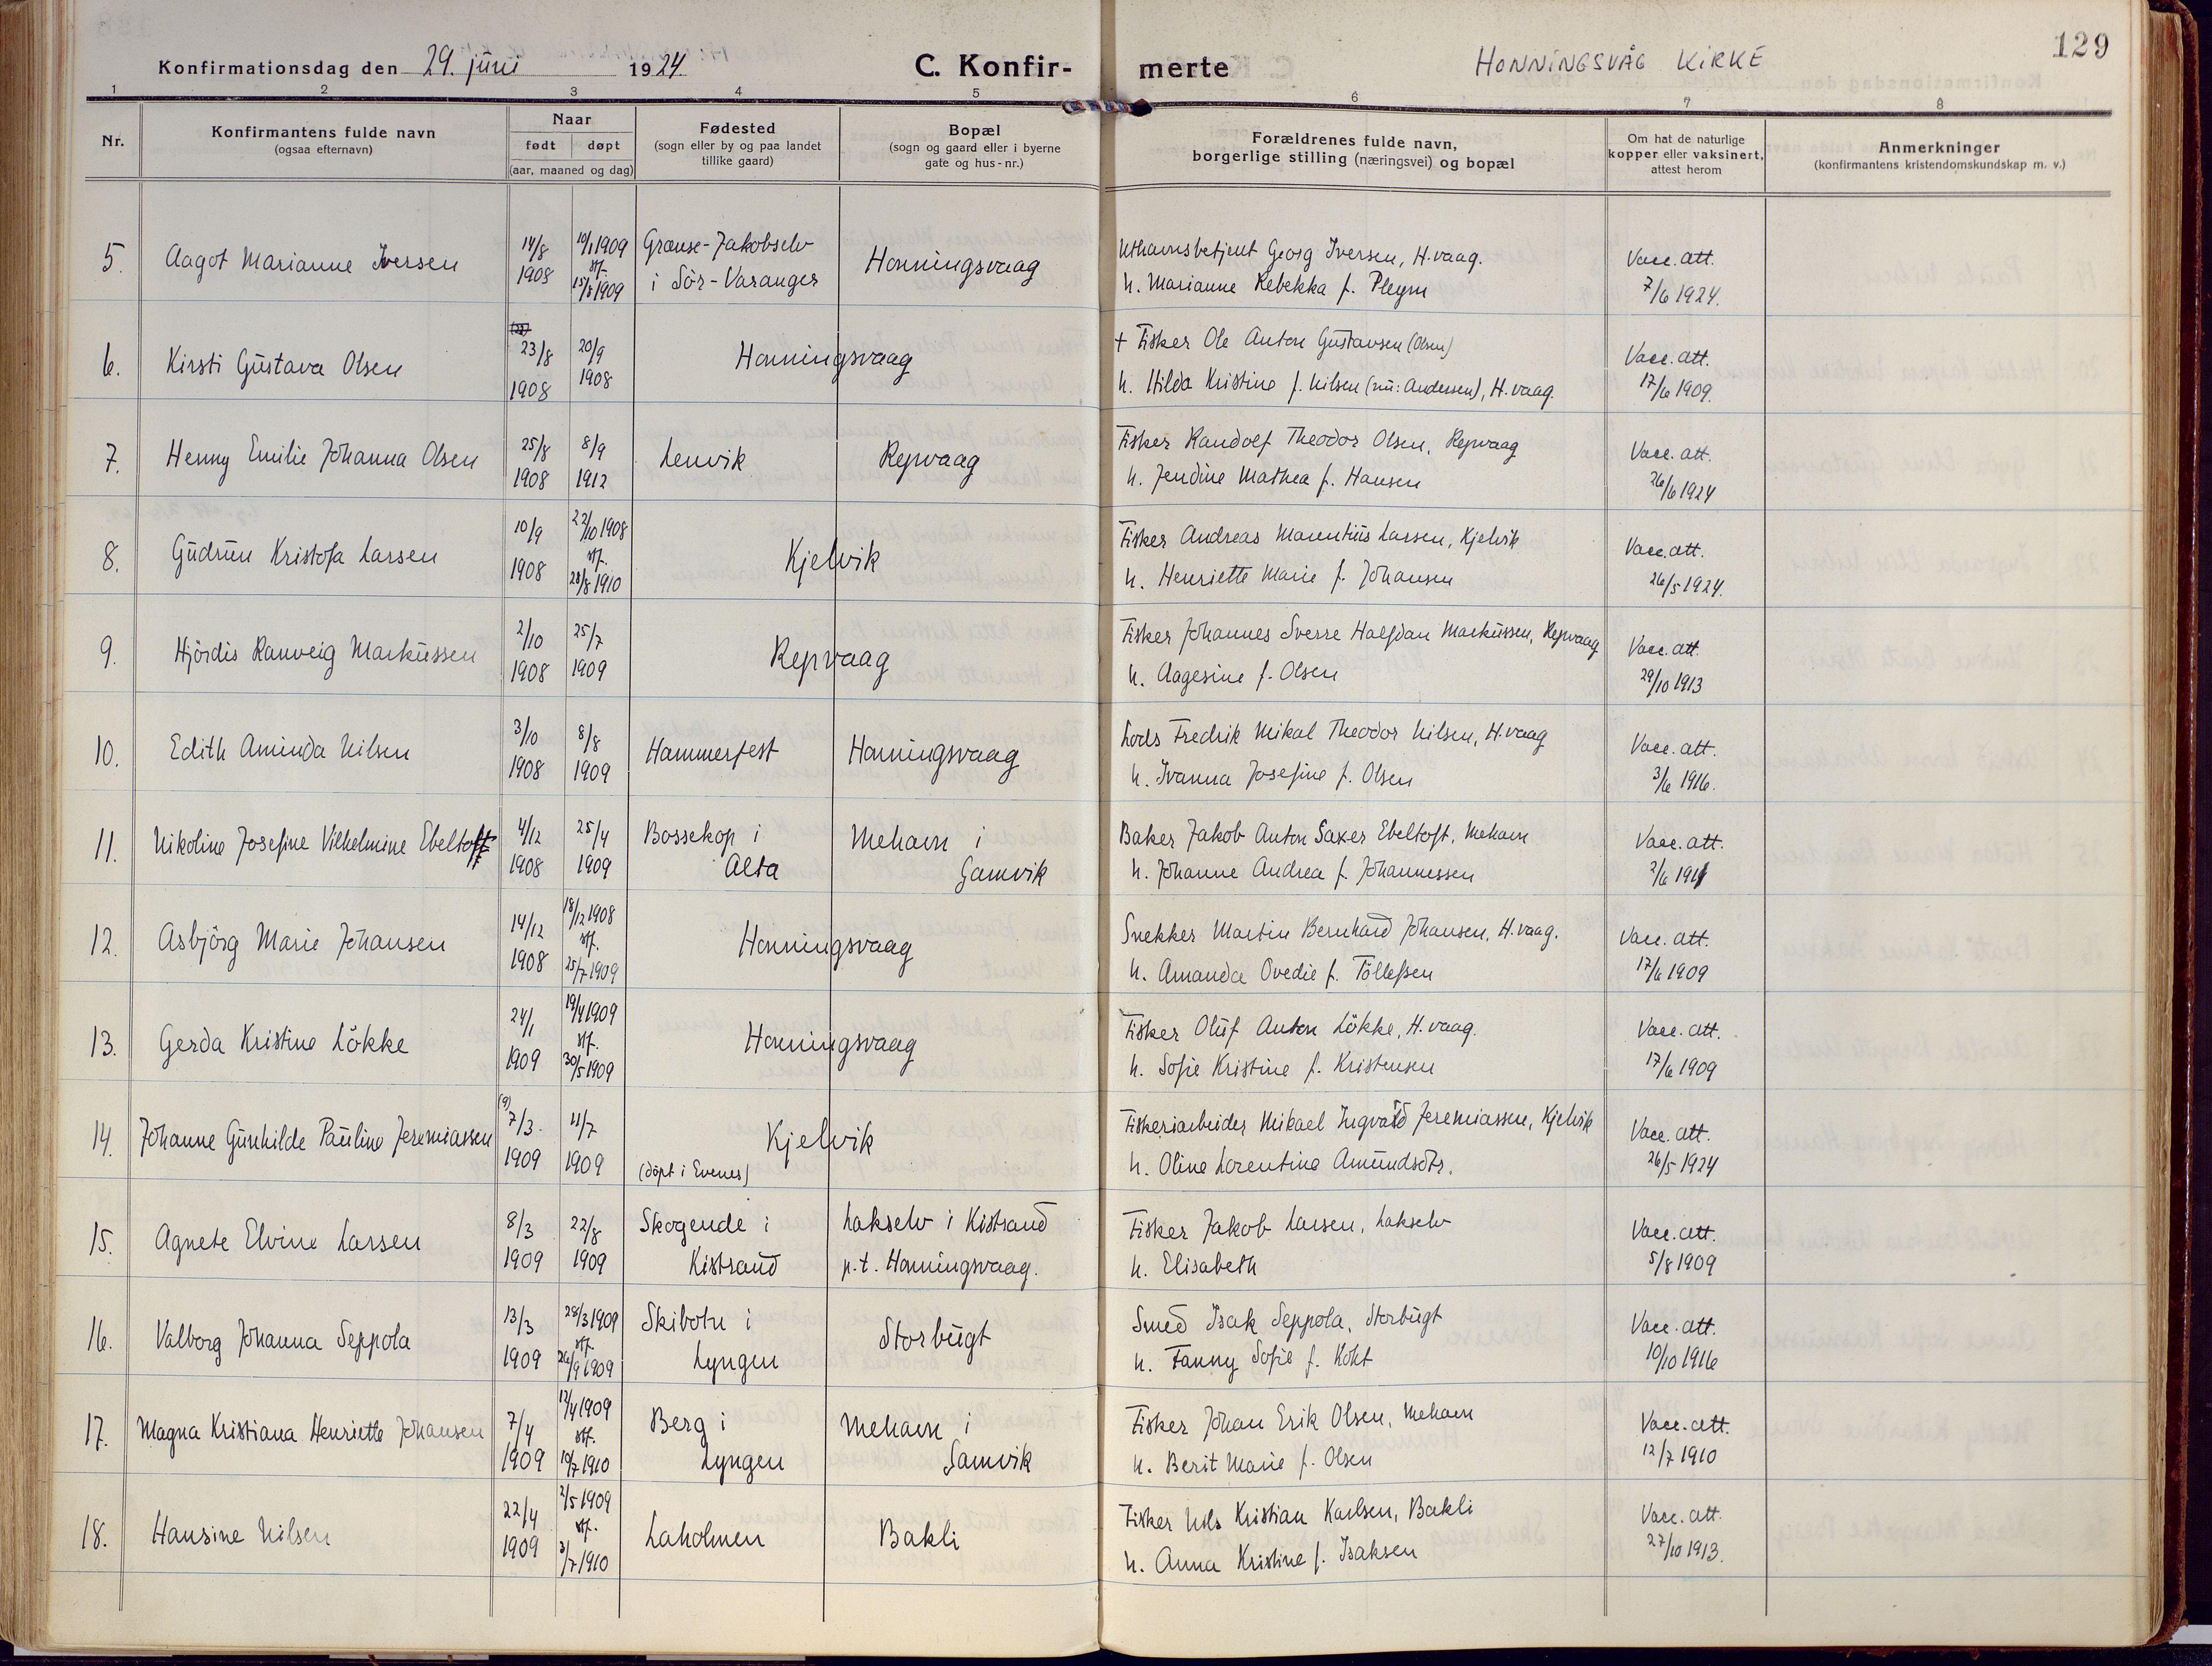 129
Konfirmationsdag den 29. juni 1924. C. Konfirmerte HONNINGSVÅG KIRKE
1 2 3 4 5 6 7 8
Nr.
Konfirmantens fulde navn
(ogsaa efternavn)
Naar
født døpt
(aar, maaned og dag)
Fødested
(sogn eller by og paa landet
tillike gaard)
Bopæl
(sogn og gaard eller i byerne
gate og hus-nr.)
Forældrenes fulde navn,
borgerlige stilling (næringsvei) og bopæl
Om hat de naturlige
kopper eller vaksinert,
attest herom
Anmerkninger
(konfirmantens kristendomskundskap m. v.)
5. Aagot Marianne Iversen 14/8 1908 10/1 1909 stf. 15/8 1909 Grænse-Jakobselv i Sör-Varanger Honningsvaag
Uthavnsbetjent Georg Iversen, H.vaag.
h. Marianne Rebekka f. Pleym
Vacc. att.
7/6 1924.
6. Kirsti Gustava Olsen 23/8 1908 20/9 1908 Honningsvaag
+ Fisker Ole Anton Gustavsen (Olsen)
h. Hilda Kristine f. Nilsen (nu: Andersen), H.vaag.
Vacc. att.
17/6 1909.
7. Henny Emilie Johanna Olsen 25/8 1908 8/9 1912 Lenvik Repvaag
Fisker Randolf Theodor Olsen, Repvaag
h. Jendine Mathea f. Hansen
Vacc. att.
26/6 1924
8. Gudrun Kristofa Larsen 10/9 1908 22/10 1908 stf. 28/8 1910 Kjelvik
Fisker Andreas Marentius Larsen, Kjelvik
h. Henriette Marie f. Johansen
Vacc. att.
26/5 1924.
9. Hjördis Ranveig Markussen 2/10 1908 25/7 1909 Repvaag
Fisker Johannes Sverre Halfdan Markussen, Repvaag
h. Aagesine f. Olsen
Vacc. att.
29/10 1913
10. Edith Aminda Nilsen 3/10 1908 8/8 1909 Hammerfest Honningsvaag
Lods Fredrik Mikal Theodor Nilsen, H.vaag
h. Ivanna Josefine f. Olsen
Vacc. att.
3/6 1916.
11. Nikoline Josefine Vilhelmine Ebeltoft 4/12 1908 25/4 1909 Bossekop i Alta Mehavn i Gamvik
Baker Jakob Anton Saxer Ebeltoft, Mehavn
h. Johanne Andrea f. Johannessen
Vacc. att.
2/6 1911
12. Asbjörg Marie Johansen 14/12 1908 18/12 1908 stf. 25/7 1909 Honningsvaag
Snekker Martin Bernhard Johansen, H.vaag.
h. Amanda Ovedie f. Tollefsen
Vacc. att.
17/6 1909
13. Gerda Kristine Lökke 24/1 1909 19/4 1909 stf. 30/5 1909 Honningsvaag
Fisker Oluf Anton Lökke, H.vaag.
h. Sofie Kristine f. Kristensen
Vacc. att.
17/6 1909
14. Johanne Gunhilde Pauline Jeremiassen (9) 7/3. 1909 11/7 1909 (döpt i Evenes) Kjelvik
Fiskeriarbeider Mikael Ingvald Jeremiassen, Kjelvik
h. Oline Lorentine Amundsdtr.
Vacc. att.
26/5 1924
15. Agnete Elvine Larsen 8/3 1909 22/8 1909 Skogende i Kistrand Lakselv i Kistrand p.t. Honningsvaag.
Fisker Jakob Larsen, Lakselv
h. Elisabeth
Vacc. att.
5/8 1909
16. Valborg Johanna Seppola 13/3 1909 28/3 1909 stf. 26/9 1909 Skibotn i Lyngen Storbugt
Smed Isak Seppola, Storbugt
h. Fanny Sofie f. Koht
Vacc. att.
10/10 1916
17. Magna Kristiana Henriette Johansen 7/4 1909 12/4 1909 stf. 10/7 1910 Berg i Lyngen Mehavn i Gamvik
Fisker Johan Erik Olsen, Mehavn
h. Berit Marie f. Olsen
Vacc. att.
12/7 1910
18. Hansine Nilsen 22/4 1909 2/5 1909 stf. 3/7 1910 Laholmen Bakli
Fisker Nils Kristian Karlsen, Bakli
h. Anna Kristine f. Isaksen
Vacc. att.
27/10 1913.